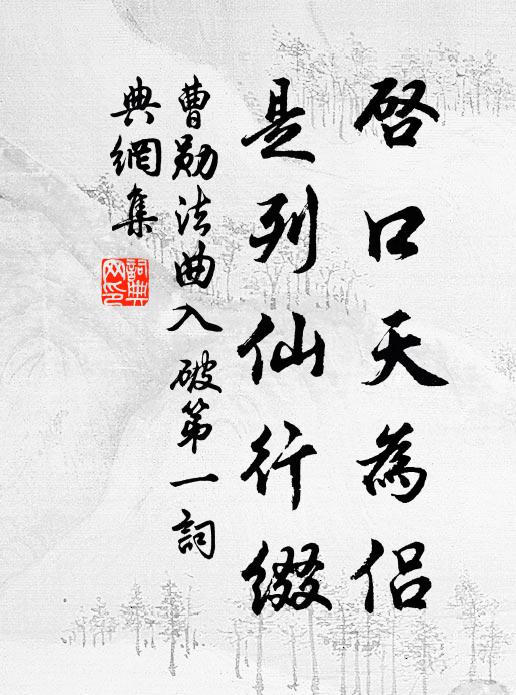 啓口天為侶
是列仙行綴
曹勛法曲入破第一詞
典網集
詞典
网印